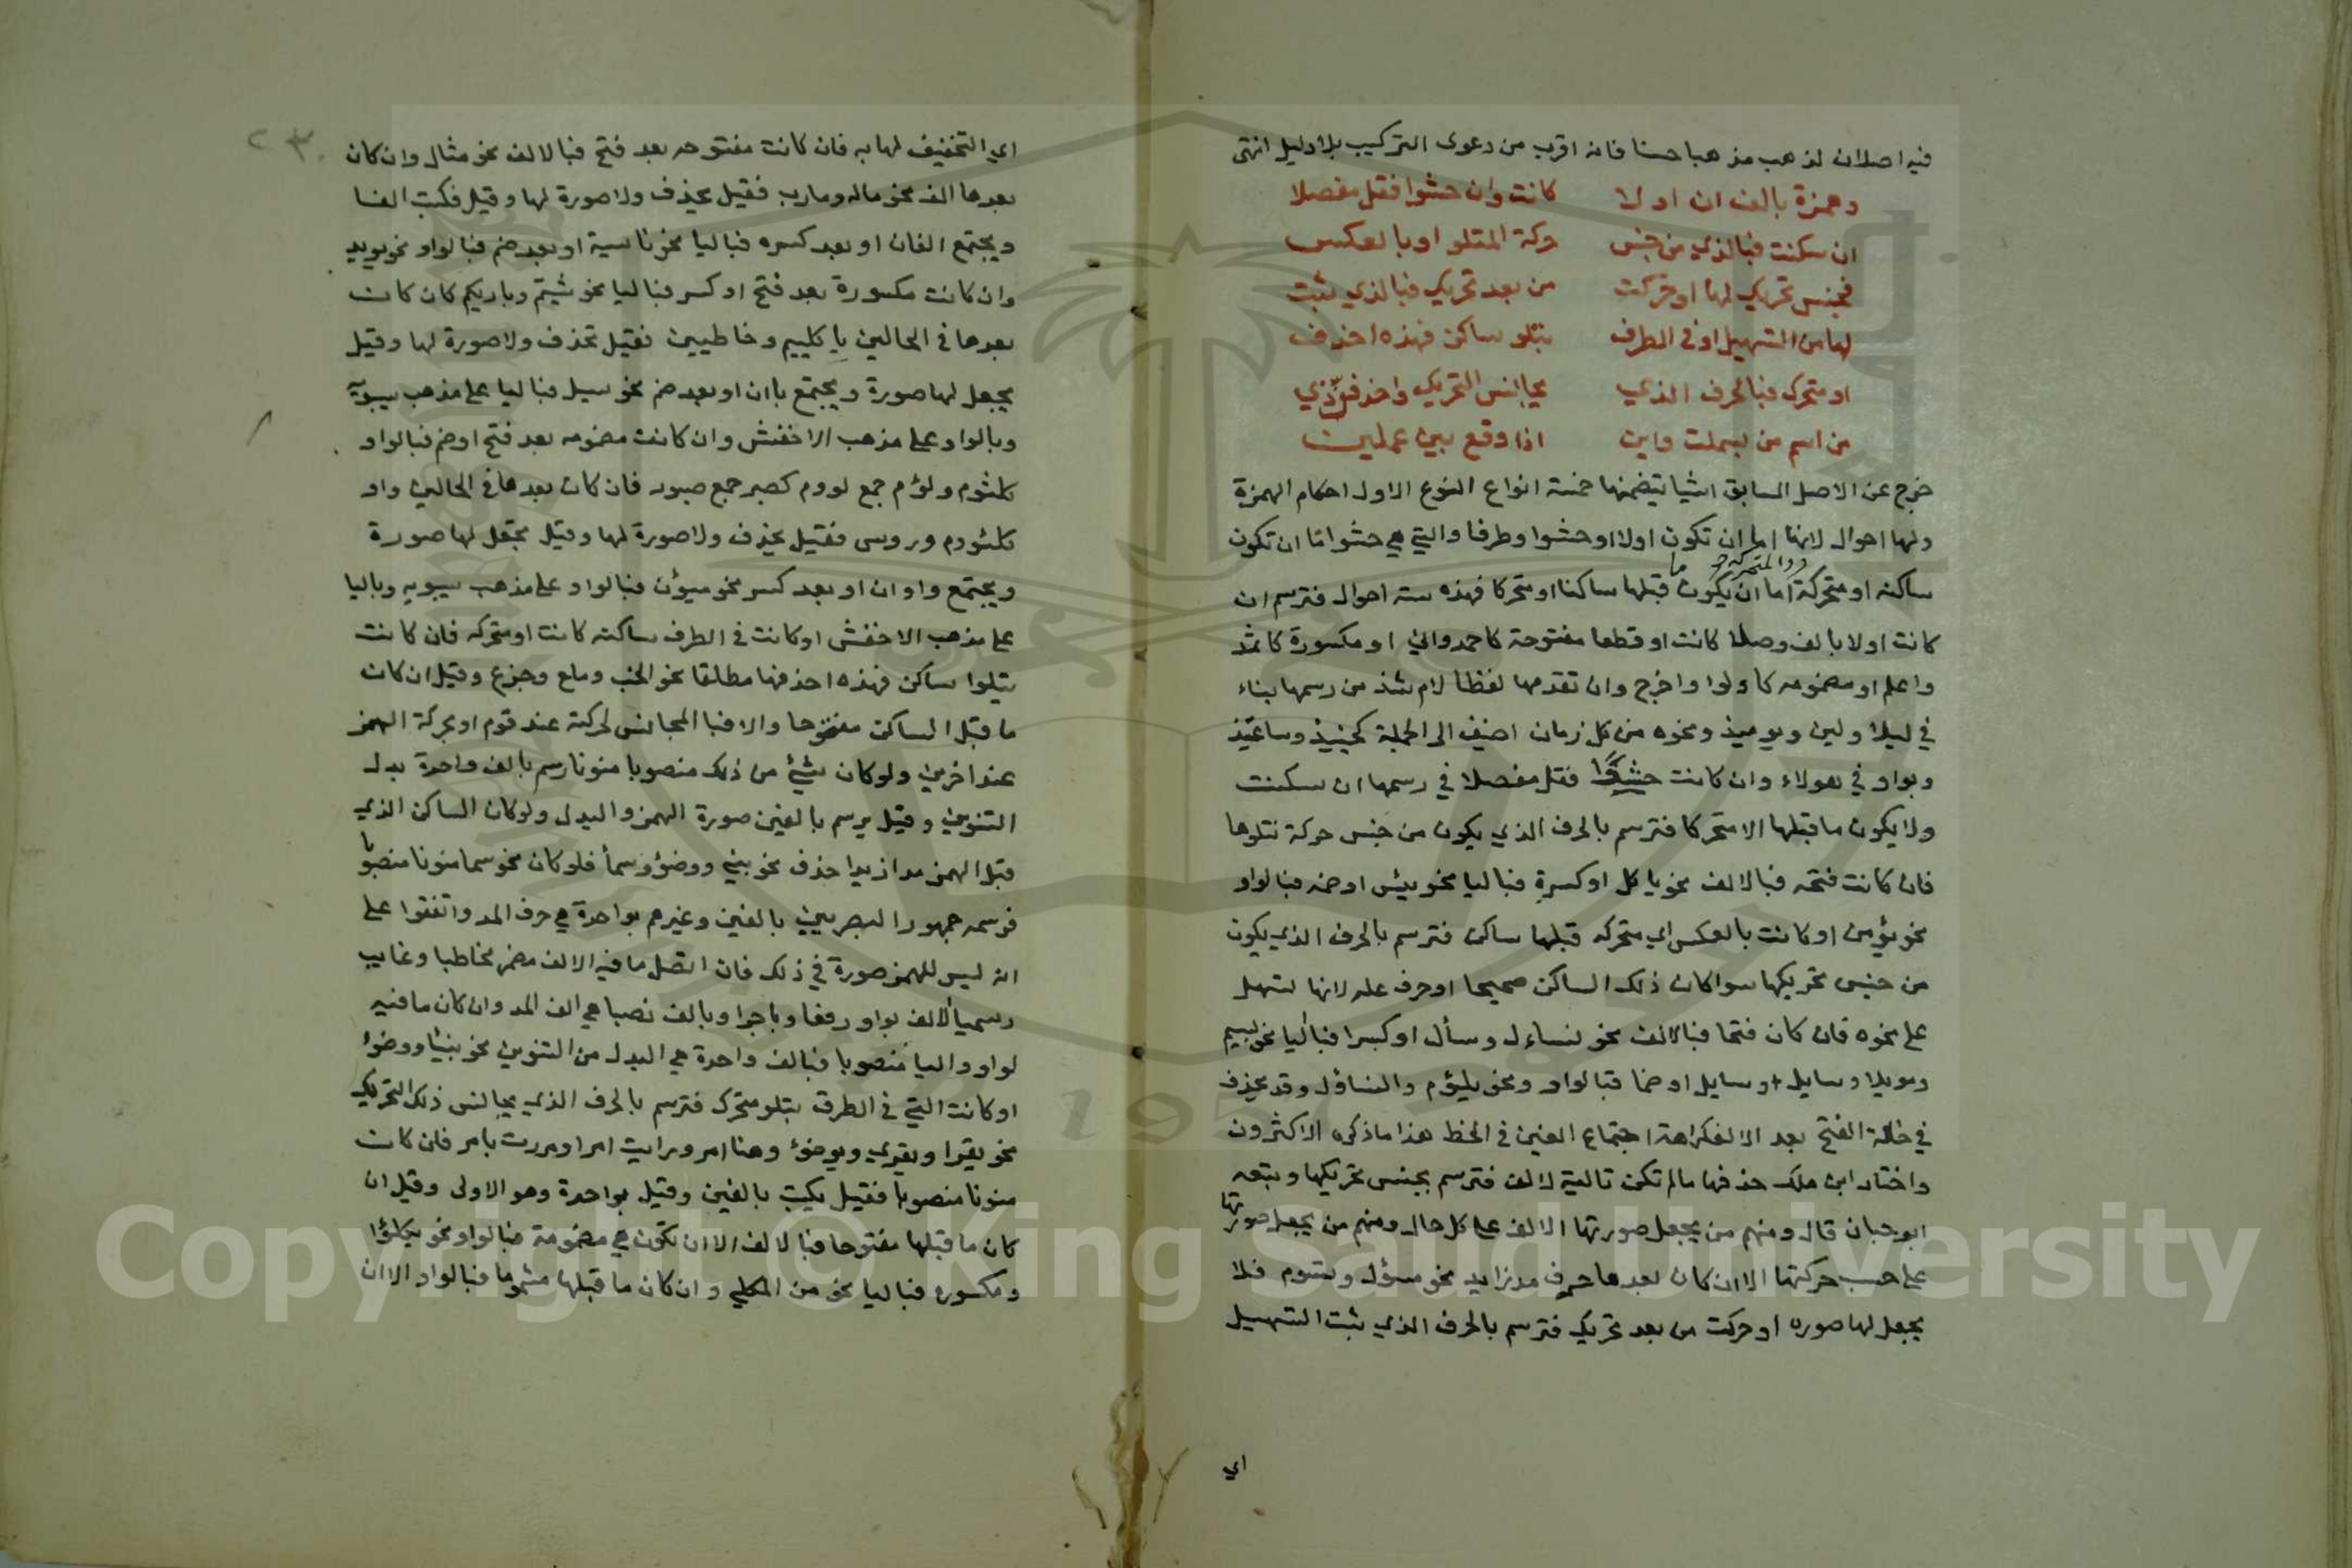 فيه اصلان لذهب مذهبا حسنا فانه اقرب من دعوى التركيب بلا دليل انتهى
وهمزة بالف ان اولا كانت وان حشوا فقل مفصلا
ان سكنت فبالذي من جنس حركة المتلو او بالعكس
فجنس تحريك لها او حركت من بعد تحريك فبالذي ثبت
لها من التسهيل او في الطرف تتلو ساكن فهذه احذف
او متحرك فبالحرف الذي يجانس التحريك واحذفن ذي
من اسم من بسملت وابن اذا وقع بين عملين
خرج عن الاصل السابق اشيا يتضمنها خمسة انواع النوع الاول احكام الهمزة
ولها احوال لانها اما ان تكون اولا او حشوا وطرفا والتي هي حشوا اما ان تكون
ساكنه او متحركة والمتحركة اما ان يكون ما قبلها ساكنا او متحركا فهذه سته احوال فترسم ان
كانت اولا بالف وصلا كانت او قطعا مفتوحة كاحمد والي او مكسورة كاثمد
واعلم او مضمومه كاولوا واخرج وان تقدمها لفظا لام شذ من رسمها بناء
في ليلا ولين ويوميذ ونحوه من كل زمان اضيف الى الجملة كحينيذ وساعتيذ
وبواو في هولاء وان كانت حشوا فقل مفصلا في رسمها ان سكنت
ولا يكون ما قبلها الا متحركا فترسم بالحرف الذي يكون من جنس حركة تتلوها
فان كانت فتحه فبالالف نحو ياكل او كسرة فباليا نحو بيس او ضمه فبالواو
نحو يؤمن او كانت بالعكس اي متحركه قبلها ساكن فترسم بالحرف الذي يكون
من جنس تحريكها سوا كان ذلك الساكن صحيحا او حرف عله لانها تسهل
على نحوه فان كان فتحا فبالالف نحو لنساءل وسأل او كسرا فباليا نحو يييم
ومويلا وسايل او ضما فبالواو ونحو يليؤم والتساؤل وقد يحذف
في حالة الفتح بعد الالف كراهة اجتماع الفين في الخط هذا ما ذكره الاكثرون
واختار ابن ملك حذفها مالم تكن تالية لالف فترسم بجنس تحريكها وتبعه
ابو حيان قال ومنهم من يجعل صورتها الالف على كل حال ومنهم من يجعل صورتها
على حسب حركتها الا ان كان بعدها حرف مد زايد نحو مسؤل وسئوم فلا
يجعل لها صوره او حركت من بعد تحريك فترسم بالحرف الذي ثبت التسهيل
اي
٢٣٠
اي التخفيف لها به فان كانت مفتوحه بعد فتح فبالالف نحو مثال وان كان
بعدها الف نحو مال ومارب فقيل يحذف ولا صورة لها وقيل فكتب الفا
ويجتمع الفان او بعد كسره فباليا نحو ناسية او بعد ضم فبالواو نحو يويد
وان كانت مكسورة بعد فتح او كسر فباليا نحو شيتم وباريكم كان كانت
بعدها في الحالين يا كلييم وخاطيين فقيل تحذف ولا صورة لها وقيل
يجعل لها صورة ويجتمع باان او بعد ضم نحو سيل فباليا على مذهب سيبويه
وبالواو على مذهب الاخفش وان كانت مضمومه بعد فتح او ضم فبالواو
كلثوم ولؤم جمع لووم كصبر جمع صبور فان كان بعدها في الحالين واو
كلئووم وروس فقيل يحذف ولا صورة لها وقيل يجعل لها صورة
ويجتمع واوان او بعد كسر نحو ميؤن فبالواو على مذهب سيبويه وباليا
على مذهب الاخفش او كانت في الطرف ساكنه كانت او متحركه فان كانت
تتلوا ساكن فهذه احذفها مطلقا نحو الخب وملء وجزء وقيل ان كان
ما قبل الساكن مفتوحا والا فبا المجانس لحركته عند قوم او بحركة الهمز
عند اخرين ولو كان شيئ من ذلك منصوبا منونا رسم بالف واحدة بدل
التنوين وقيل يرسم بالفين صورة الهمز والبدل ولو كان الساكن الذي
قبل الهمز مدا زيدا حذف نحو بنيه ووضوؤ وسمأ فلو كان نحو سما منونا منصوبا
فرسمه جمهور البصريين بالفين وغيرهم بواحدة هي حرف المد واتفقوا على
انه ليس للهمز صورة في ذلك فان اتصل ما فيه الالف مضمر مخاطبا وغايب
رسميا لالف بواو رفعا وبا جرا وبالف نصبا هي الف المد وان كان ما فيه
لواو واليا منصوبا فبالف واحدة هي البدل من التنوين نحو بنيا ووضوٴ
او كانت التي في الطرف تتلو متحرك فترسم بالحرف الذي يجانس ذلك التحريك
نحو يقرا ويقري ويوضؤ وهنا امر ورايت امرا ومررت بامر فان كان
منونا منصوبا فقيل يكتب بالفين وقيل بواحدة وهو الاولى وقيل ان
كان ما قبلها مفتوحا فبالالف الا ان تكون هي مضمومة فبالواو نحو يكلؤا
ومكسوره فباليا نحو من الكلي وان كان ما قبلها مضموما فبالواو الا ان
Copyright © King Saud University
195